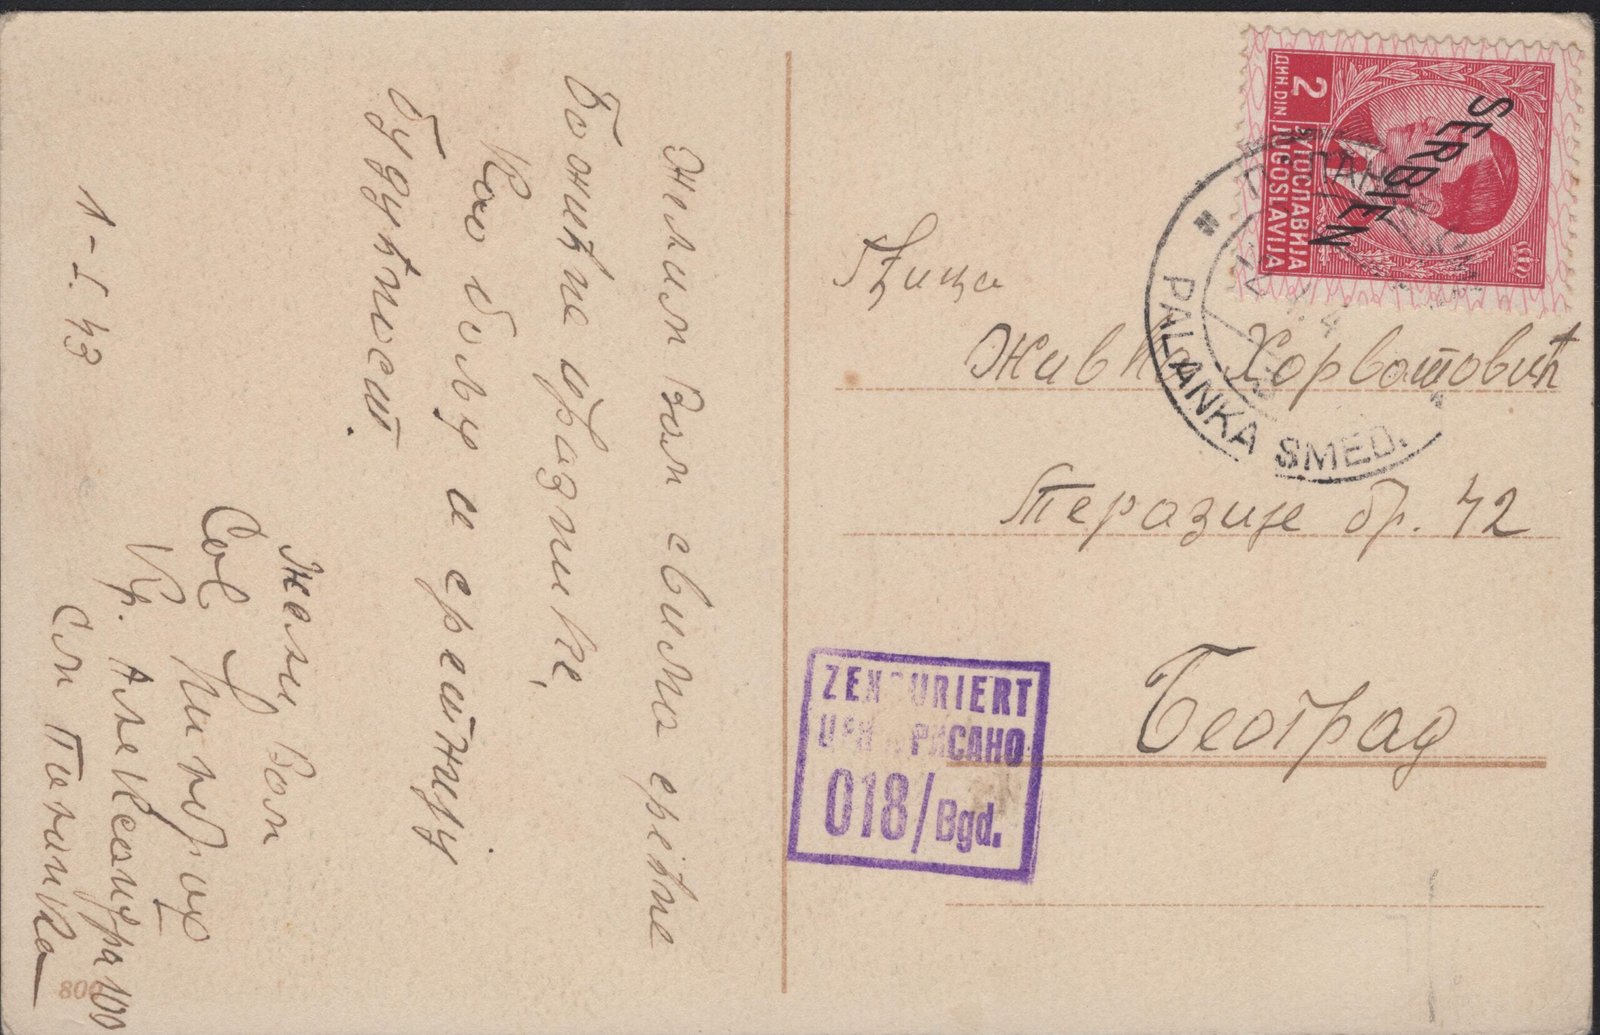 Желим Вам свима срећне
Божићне празнике,
Као бољу и сретнију
Будућност.
жели Вам
Кр. Александра 100
См Паланка
1-I.43
800
2
ДИН. DIN
ЈУГОСЛАВИЈА
JUGOSLAVIJA
SERBIEN
PALANKA SMED.
Живко Хорватовић
Теразије бр. 42
Београд
ZENSURIERT
ЦЕНЗУРИСАНО
018/Bgd.